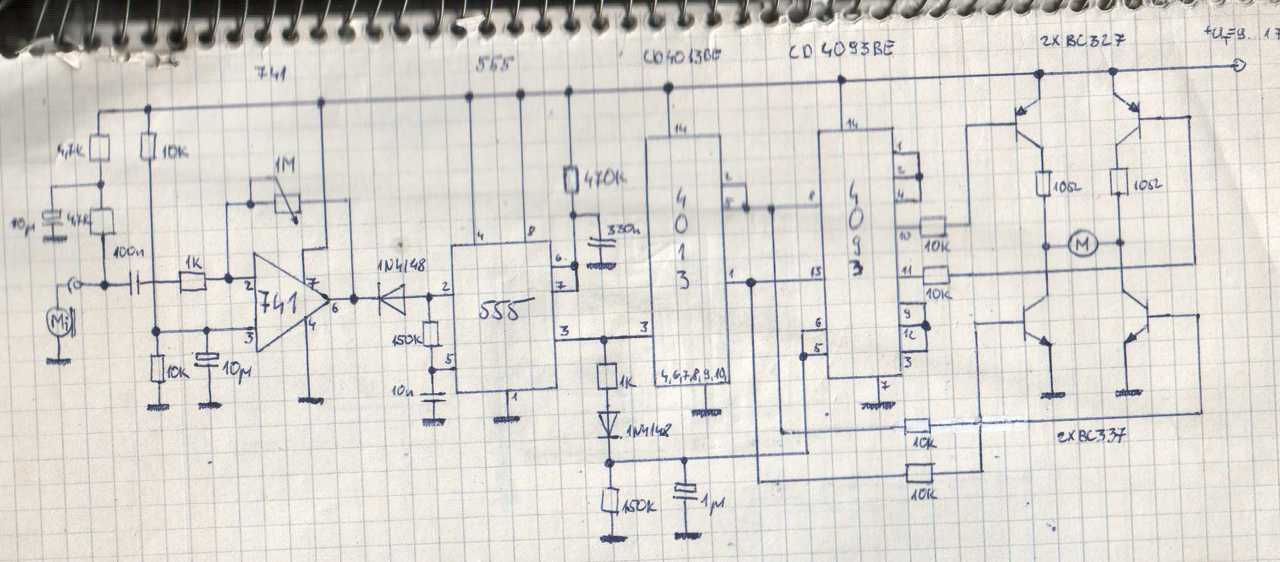 741
555
CD4013BE
CD 4093BE
2XBC327
4,7K
10K
1M
10μ
4,7K
100n
1K
Mi
2
3
7
4
6
741
10K
10μ
1N4148
150K
10n
4
8
2
5
6
7
3
1
555
470K
330n
1K
1N4148
150K
1μ
14
2
5
1
3
4013
4,6,7,8,9,10,
14
8
13
6
5
7
4093
1
2
4
10
11
9
12
3
10K
10K
10K
10K
10Ω
10Ω
M
2XBC337